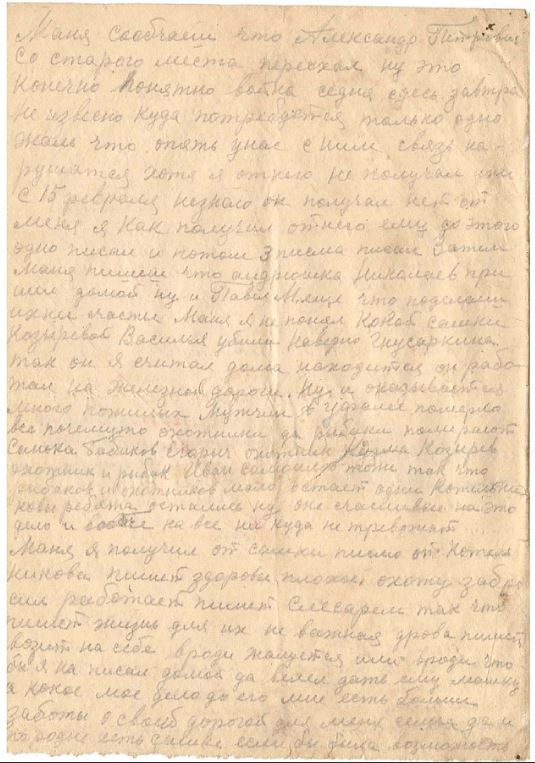 Маня сообчаеш что Александр Петрович
со старого места переехал ну это
конечно понятно война седня сдесь завтра
не извесно куда потребуется только одно
жаль что опять у нас с ним связь на-
рушится хотя я от него не получал
с 15 февраля незнаю он получал нет от
меня я как получил от него ему до этого
одно писал и потом 3 писма писал Затем
Маня пишеш что андрюшка Николаев при
шел домой ну и Павел что поделаеш
ихное счастье Маня я не понял какой сашки
Козыревой Василья убили наверно Гнусаркина
так он я считал дома находится он рабо-
тал на железной дороги. Ну и оказывается
много пожилых мужчин померло
все почемуто охотники да рыбаки помирают
Егорыч охотник Козырев
охотник и рыбак Иван тоже так что
рыбаков и охотников мало остает одни Котельни
ковы ребята остались ну они счасливые на это
дело и на все ни куда не тревожат
Маня я получил от сашки писмо от Котель
никова пишет здоровье плохое охоту забро
сил работает пишет Слесарем так что
пишет жизнь для их не важная дрова пишет
возит на себе вроди жалуется или вроди что
бы я на писал домой да велел дать ему машку
а какое мое дело до его мне есть больши
заботы о своей дорогой для меня семьи да и
по родне есть если бы была возможность